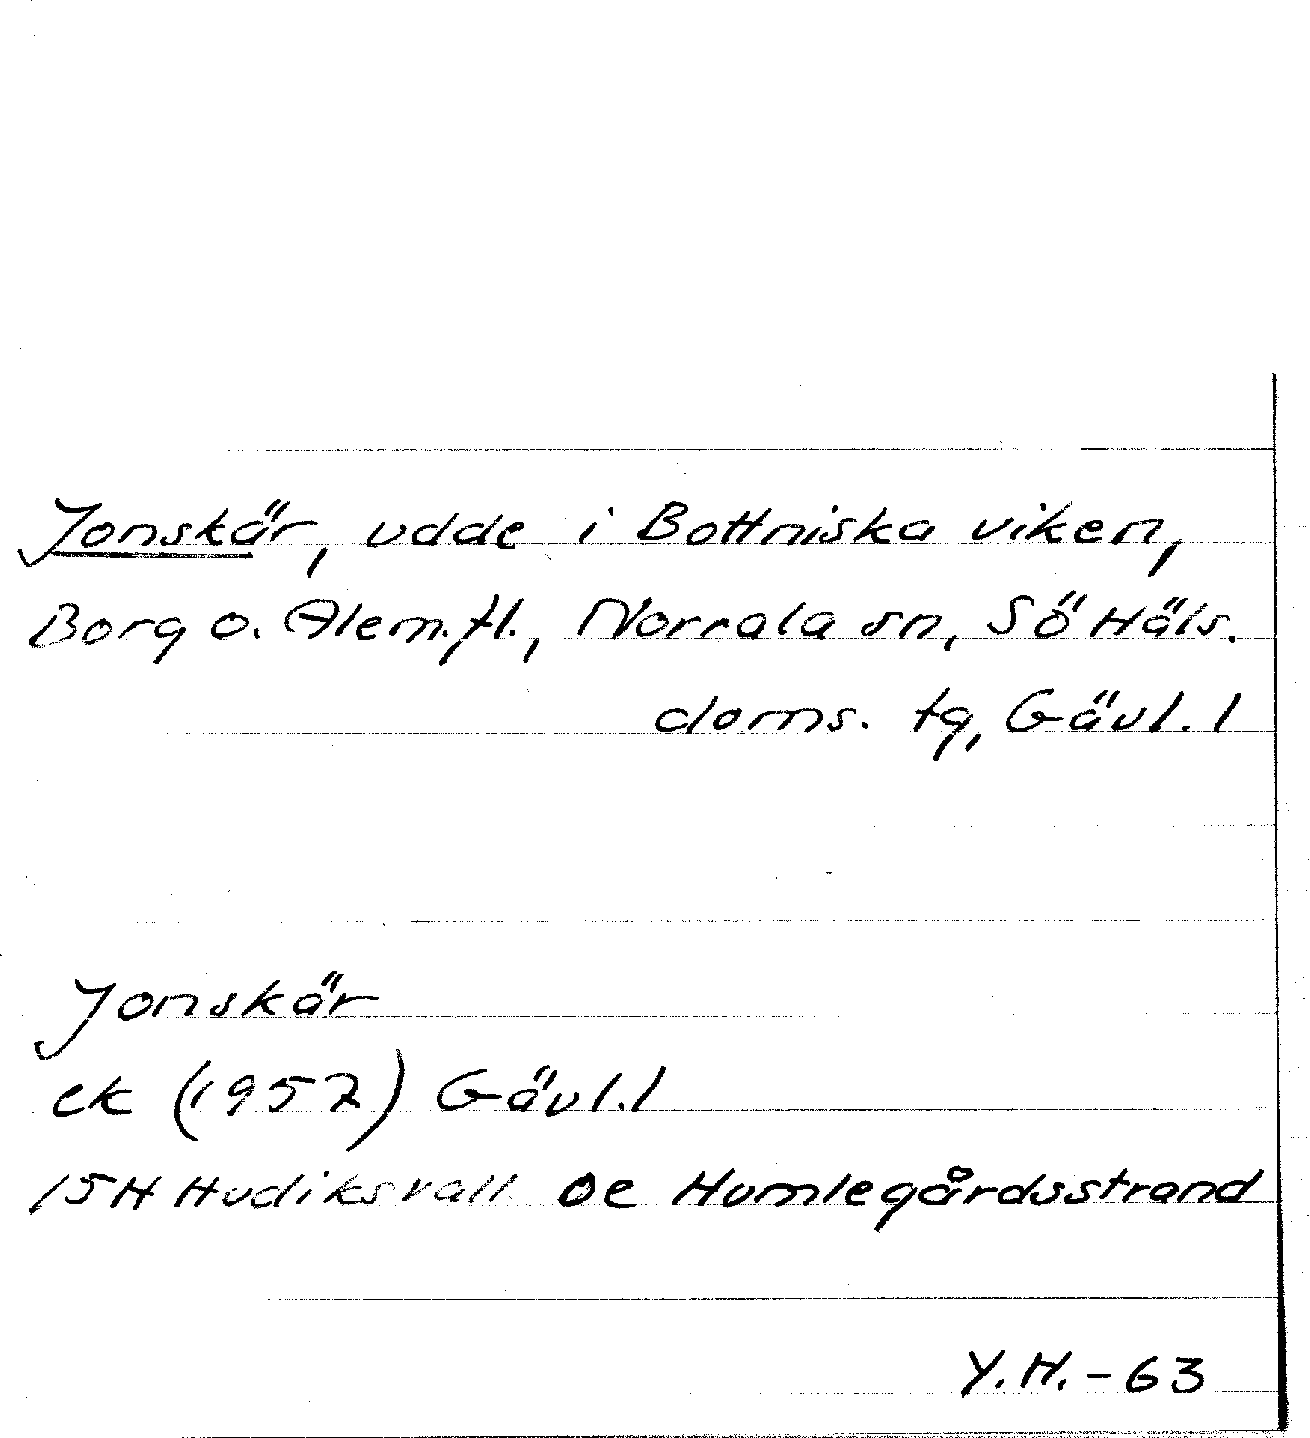 Jonskär, udde i Bottniska viken,
Borg o. Alem. fl., Norrala sn, Sö Häls.
doms. tg, Gävl. l
Jonskär
ek (1952) Gävl. l
15H Hudiksvall 0e Humlegårdsstrand
Y.H. - 63